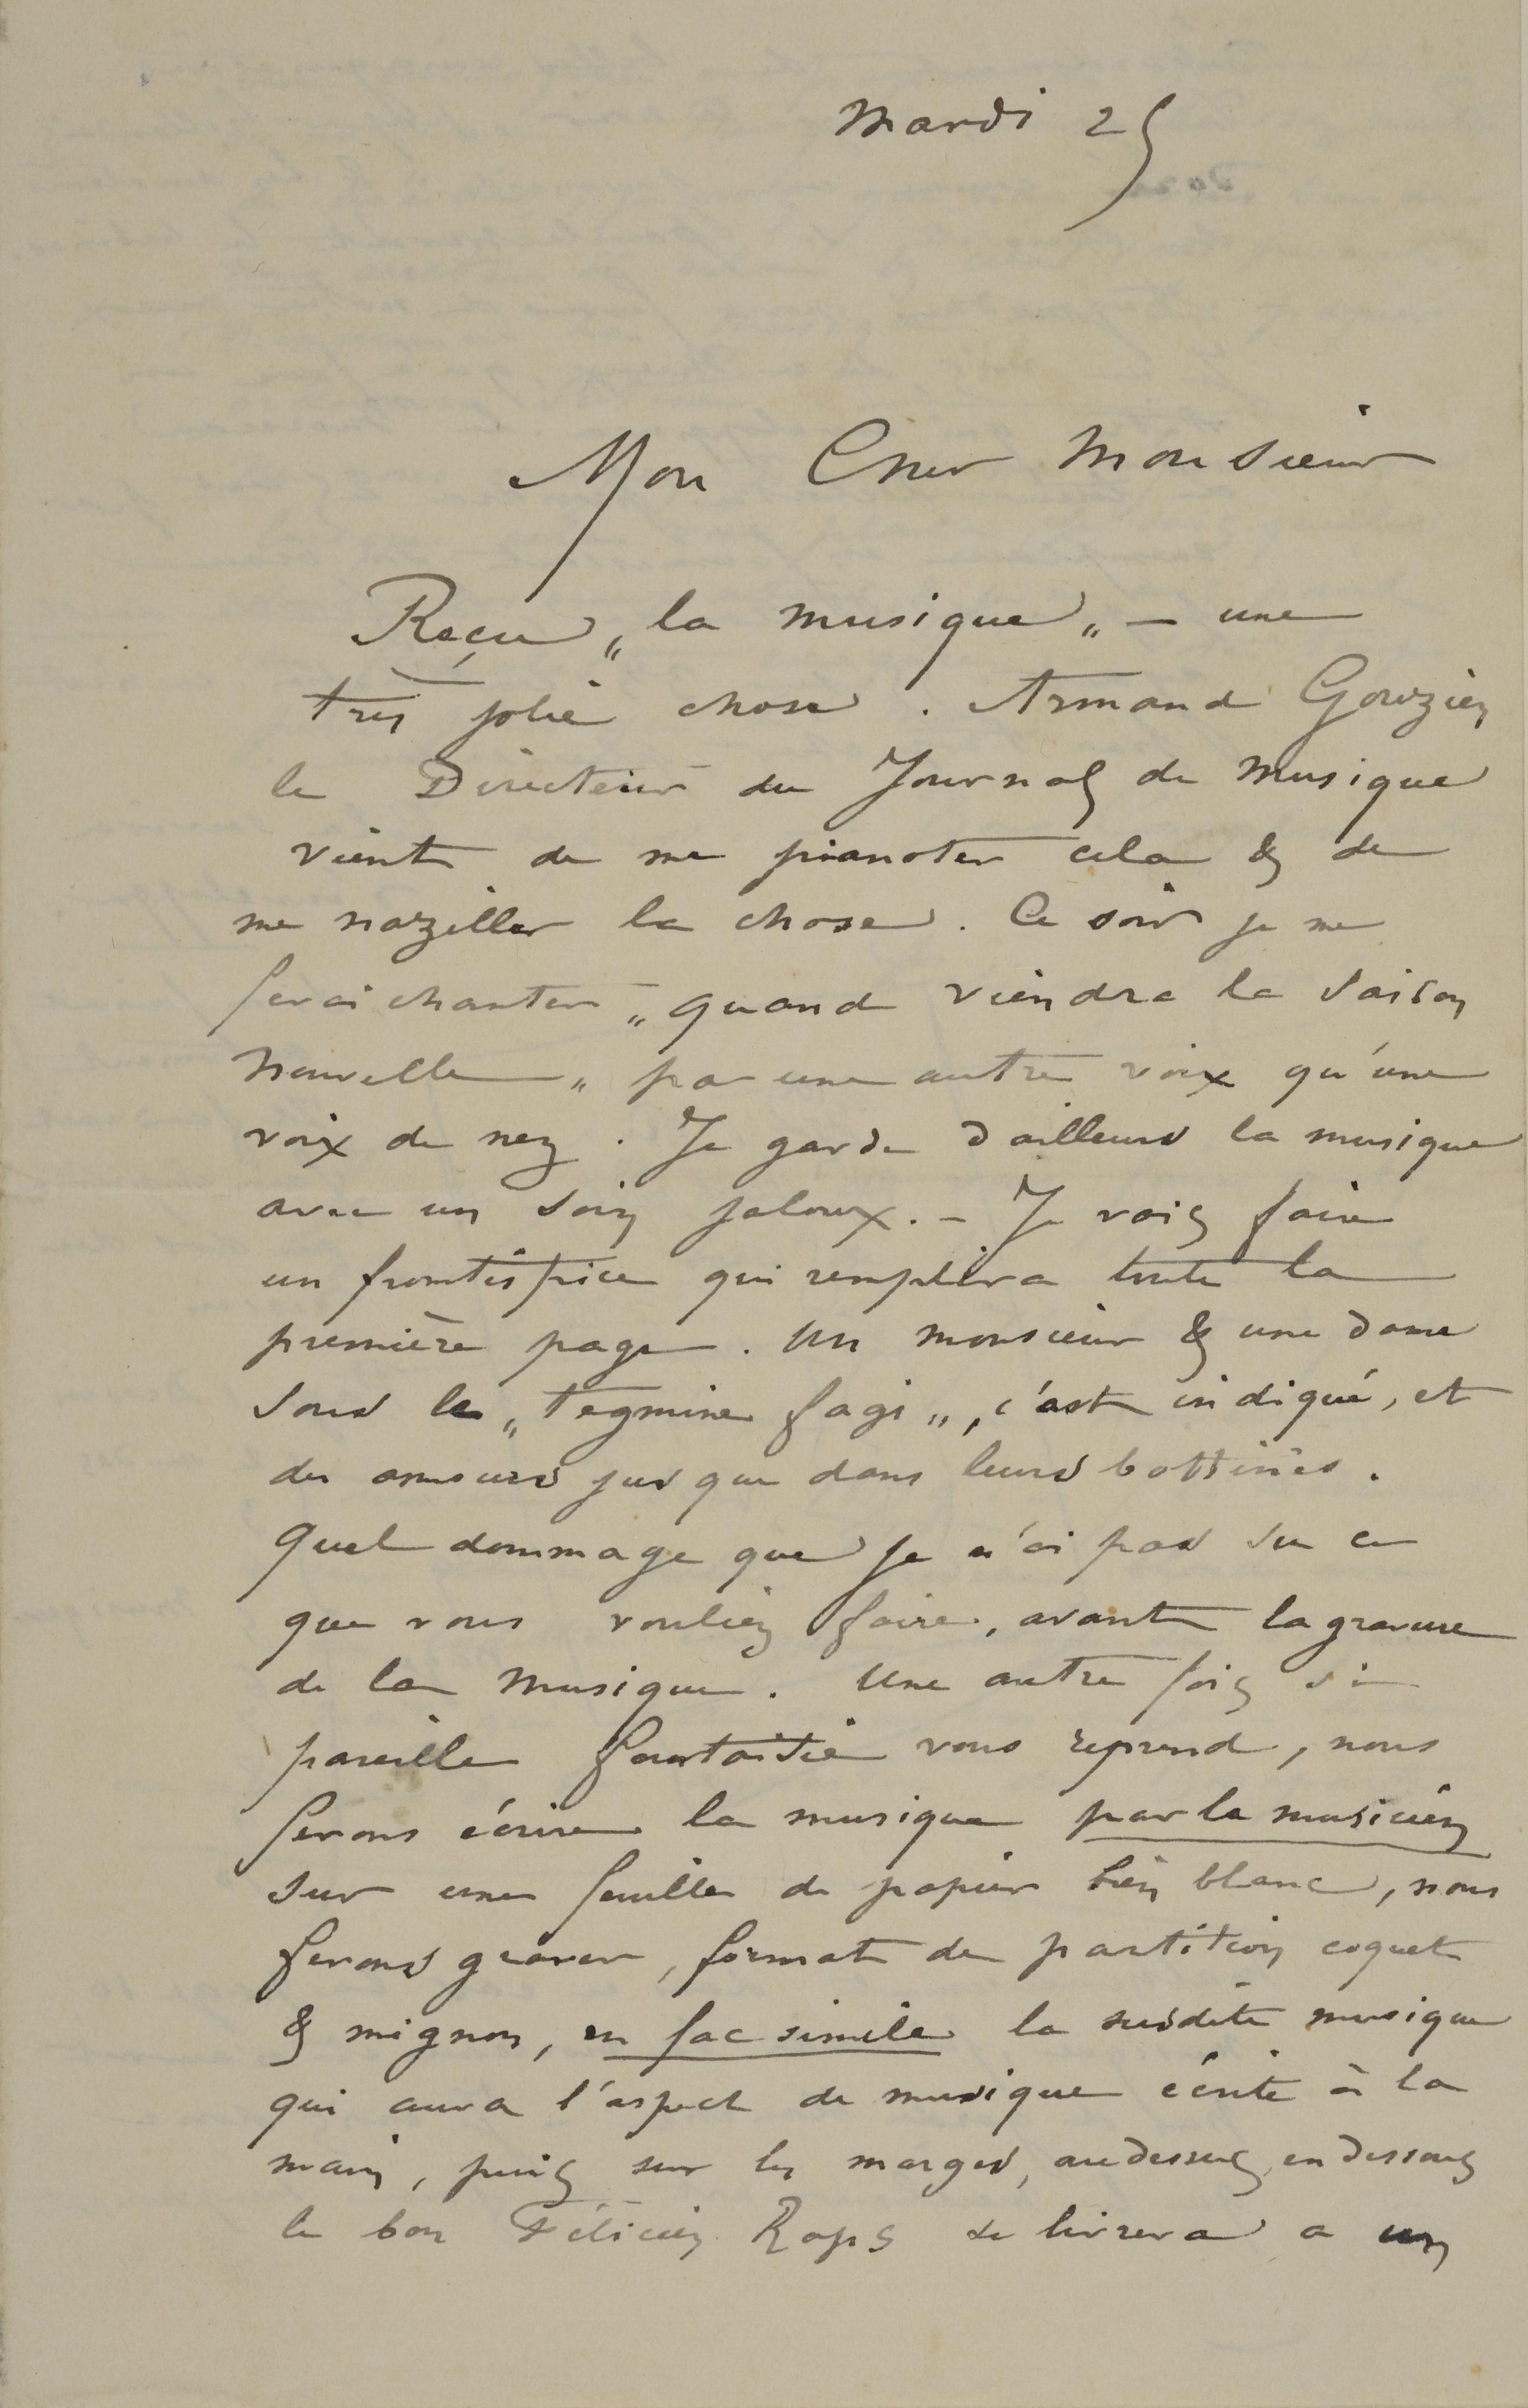 Mardi 25
Mon Cher Monsieur
Reçu „la musique„ – une
très jolie chose. Armand Gouzien
le Directeur du Journal de Musique
vient de me pianoter cela & de
me naziller la chose. Ce soir je me
ferai chanter „quand viendra la saison
nouvelle„ par une autre voix qu'une
voix de nez. Je garde d'ailleurs la musique
avec un soin jaloux. – Je vais faire
un frontispice qui remplira toute la
première page. Un monsieur & une dame
sous le „tegmine fagi„, c'est indiqué, et
des amours jusque dans leurs bottines.
Quel dommage que je n'ai pas su ce
que vous vouliez faire, avant la gravure
de la musique. Une autre fois si
pareille fantaisie vous reprend, nous
ferons écrire la musique par le musicien
sur une feuille de papier bien blanc, nous
ferons graver, format de partition coquet
& mignon, en fac simile la susdite musique
qui aura l'aspect de musique écrite à la
main, puis sur les marges, au dessus, en dessous
le bon Félicien Rops se livrera a un